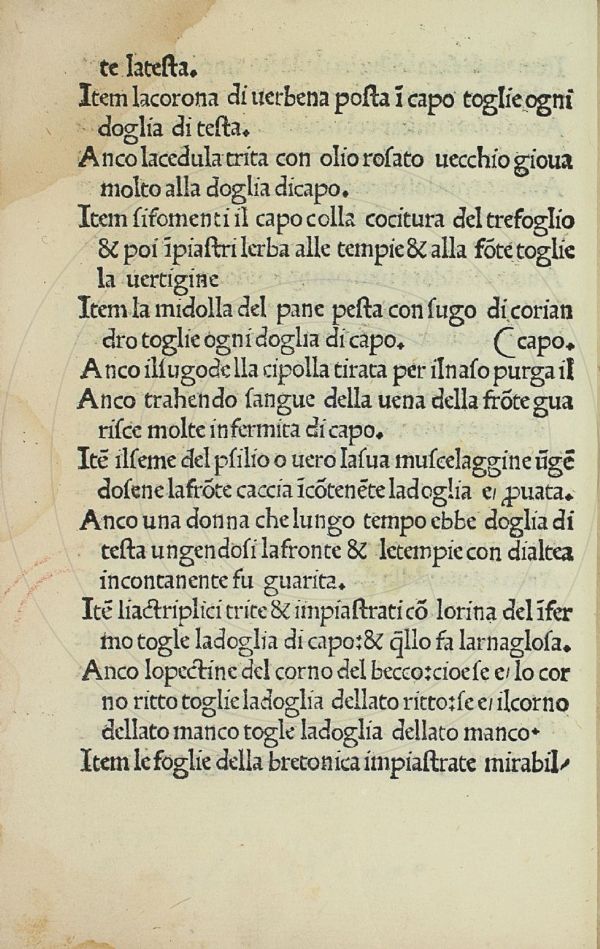 te lateſta.
Item lacorona di uerbena poſta ī capo toglie ogni
doglia di teſta.
Anco lacedula trita con olio roſato uecchio gioua
molto alla doglia dicapo.
Item ſifomenti il capo colla cocitura del trefoglio
& poi īpiaſtri lerba alle tempie & alla fōte toglie
la uertigine
Item la midolla del pane peſta con ſugo di corian
dro toglie ogni doglia di capo. (capo.
Anco ilſugo della cipolla tirata per ilnaſo purga il
Anco trahendo ſangue della uena della frōte gua
riſce molte infermita di capo.
Itē ilſeme del pſilio o uero laſua muſcelaggine ūgē
doſene lafrōte caccia īcōtenēte ladoglia e, ꝓuata.
Anco una donna che lungo tempo ebbe doglia di
teſta ungendoſi lafronte & letempie con dialtea
incontanente fu guarita.
Itē liactriplici trite & impiaſtrati cō lorina del īfer
mo togle ladoglia di capo: & q̄llo fa larnagloſa.
Anco lopectine del corno del becco: cioe ſe e, lo cor
no ritto toglie ladoglia dellato ritto: ſe e, ilcorno
dellato manco togle ladoglia dellato manco.
Item le foglie della bretonica impiaſtrate mirabil-